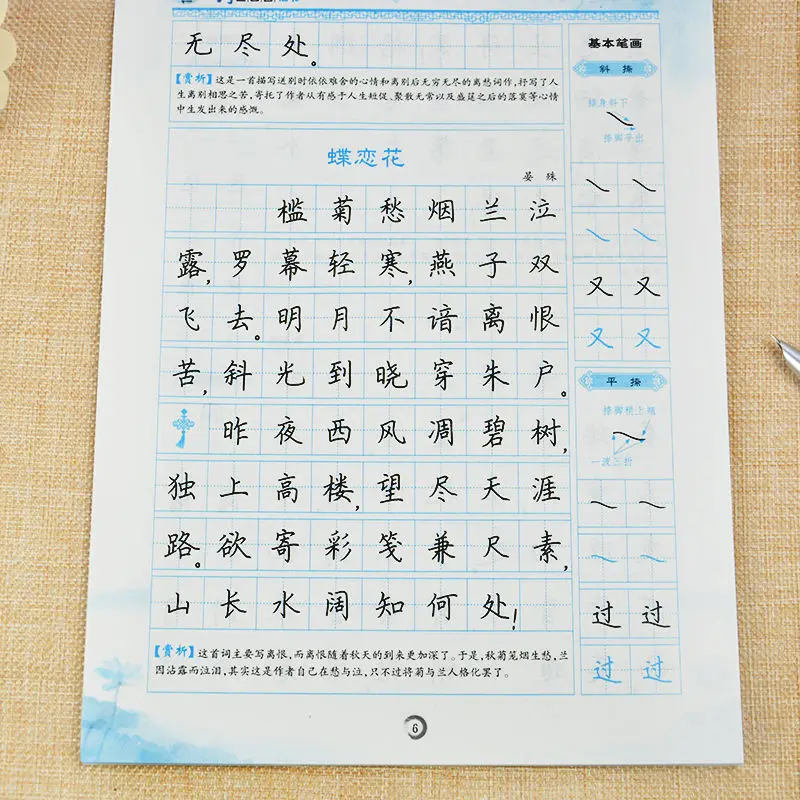 无尽处。
【赏析】这是一首描写送别时依依难舍的心情和离别后无穷无尽的离愁词作,抒写了人
生离别相思之苦,寄托了作者从有感于人生短促、聚散无常以及盛筵之后的落寞等心情
中生发出来的感慨。
蝶恋花
晏 殊
槛菊愁烟兰泣
露,罗幕轻寒,燕子双
飞去。明月不谙离恨
苦,斜光到晓穿朱户。
昨夜西风凋碧树,
独上高楼,望尽天涯
路。欲寄彩笺兼尺素,
山长水阔知何处!
【赏析】这首词主要写离恨,而离恨随着秋天的到来更加深了。于是,秋菊笼烟生愁,兰
因沾露而泣泪,其实这是作者自己在愁与泣,只不过将菊与兰人格化罢了。
基本笔画
斜捺
捺身斜下
捺脚平出
又 又
又 又
平捺
捺脚稍上翘
一波三折
过 过
过 过
6